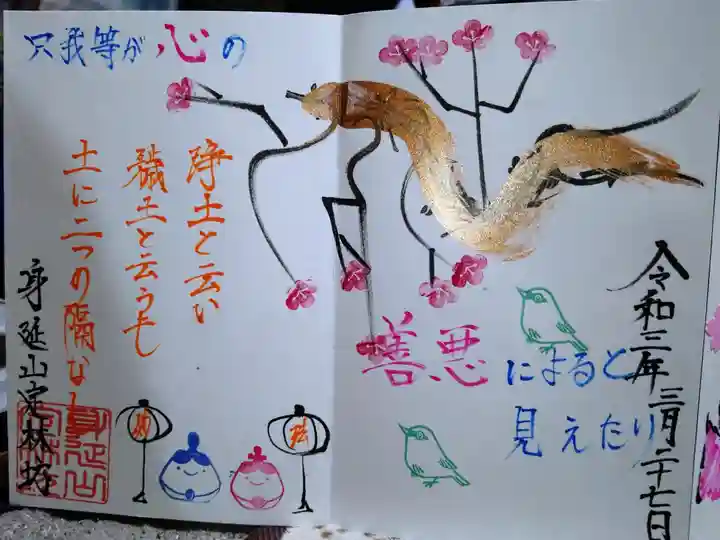 令和三年三月二十七日
浄土と云い
穢土と云うも
土に二つの隔なし
只我等が心の
善悪によると
見えたり
身延山定林坊
身延山